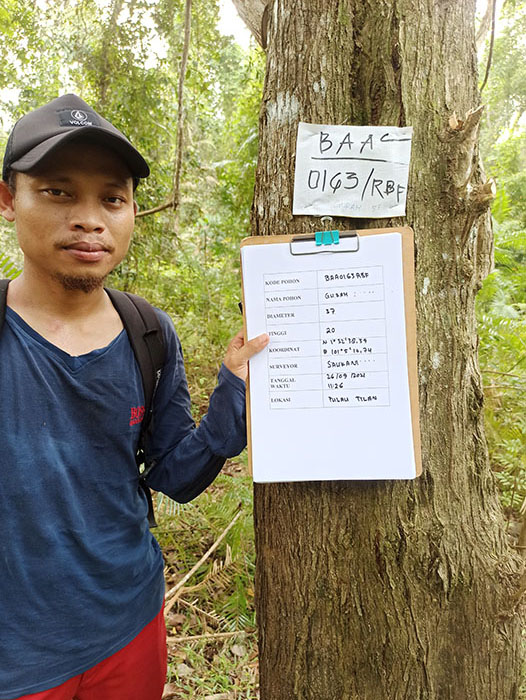 VOLCOM
BAA
0163/RBF
KODE POHON BAA0163RBF
NAMA POHON GUBAH ....
DIAMETER 37
TINGGI 20
KOORDINAT N 1°32'38.55
B 101°5'14.74
SURVEYOR SAUKANI ...
TANGGAL 26/09/2021
WAKTU 11:26
LOKASI PULAU TILAN